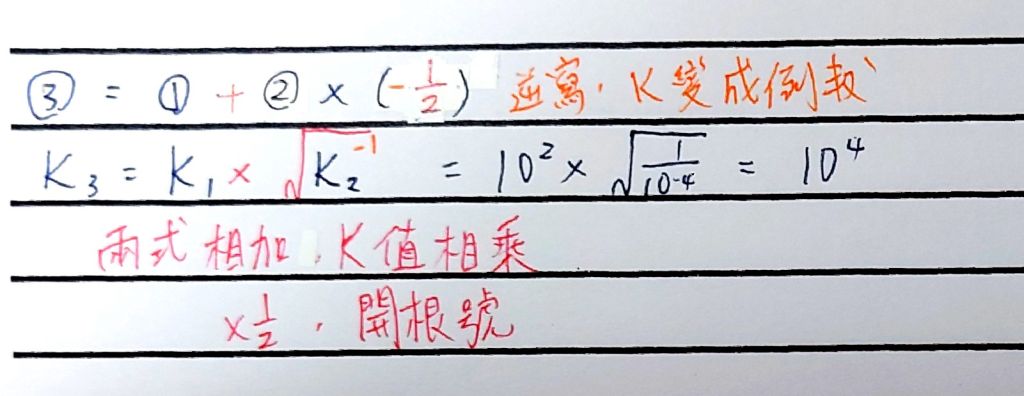 ③ = ① + ② × (-1/2) 逆寫，K變成倒數
K₃ = K₁ × √K₂⁻¹ = 10² × √(1/10⁻⁴) = 10⁴
兩式相加，K值相乘
×1/2，開根號